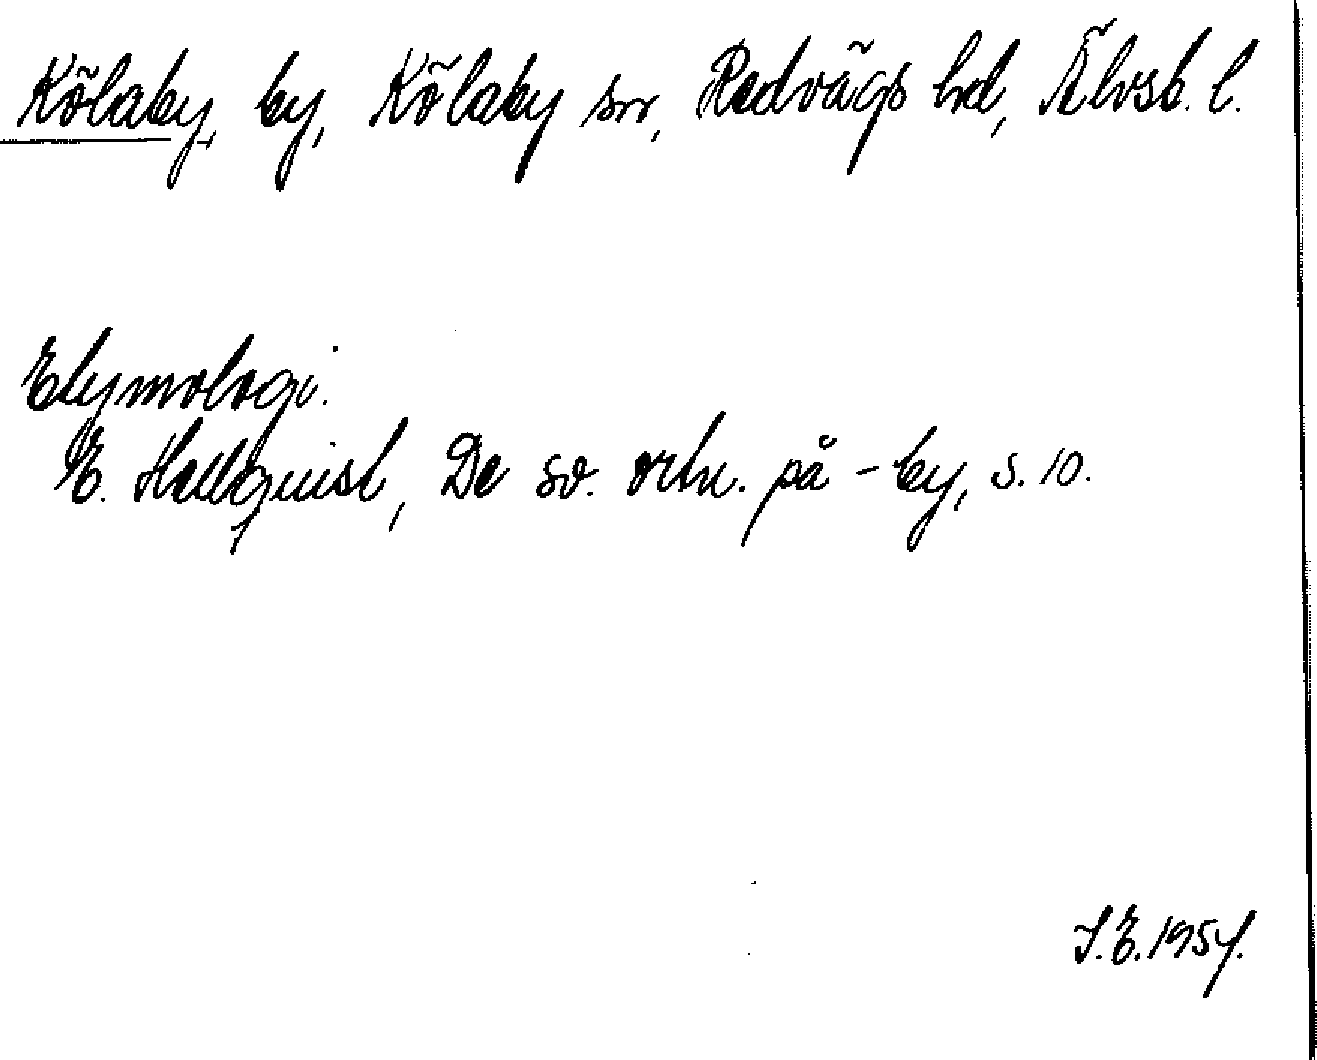 Kölaby, by, Kölaby sn, Redvägs hd, Älvsb. l.
Etymologi.
E. Hellquist, De sv. ortn. på -by, s. 10.
S.E. 1954.